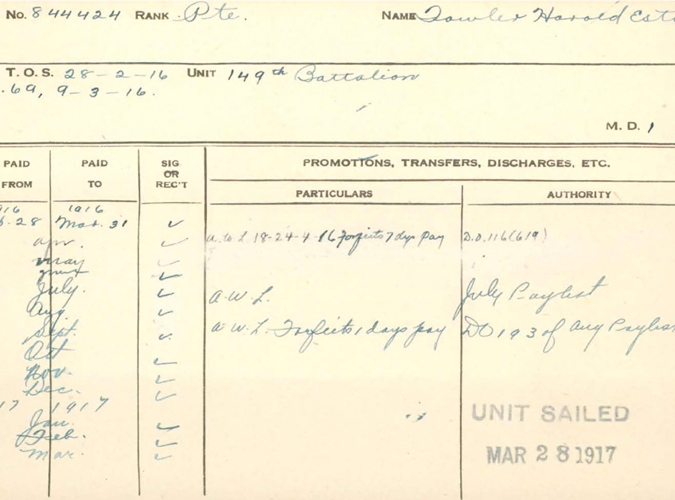 No. 844424 RANK Pte. NAME Fowler Harold
T.O.S. 28-2-16 UNIT 149th Battalion
.69, 9-3-16.
M. D. 1
PAID FROM PAID TO SIG OR REC'T PROMOTIONS, TRANSFERS, DISCHARGES, ETC.
PARTICULARS AUTHORITY
16 1916
28 Mar. 31 ✓
apr. ✓ a.W.L. 18-24-4-16 Forfeits 7 dys pay D.O.116(619)
may ✓
june ✓
July. ✓ a.W.L. July Paylist
Aug ✓
Sept. ✓ a.W.L. Forfeits 1 days pay DO 193 of Aug Paylist
Oct
Nov. ✓
Dec. ✓
17 1917
Jan. ✓
Feb. ✓
Mar. ✓
UNIT SAILED
MAR 28 1917